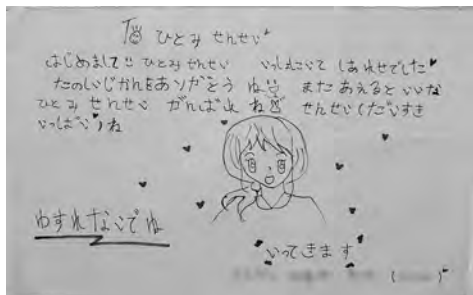 To ひとみ せんせい
はじめまして!! ひとみ せんせい いっしょにいて しあわせでした
たのしいじかんをありがとう ね またあえると いいな
ひとみ せんせい がんばれ ね せんせい だいすき
いっぱい ね
わすれないでね
いってきます